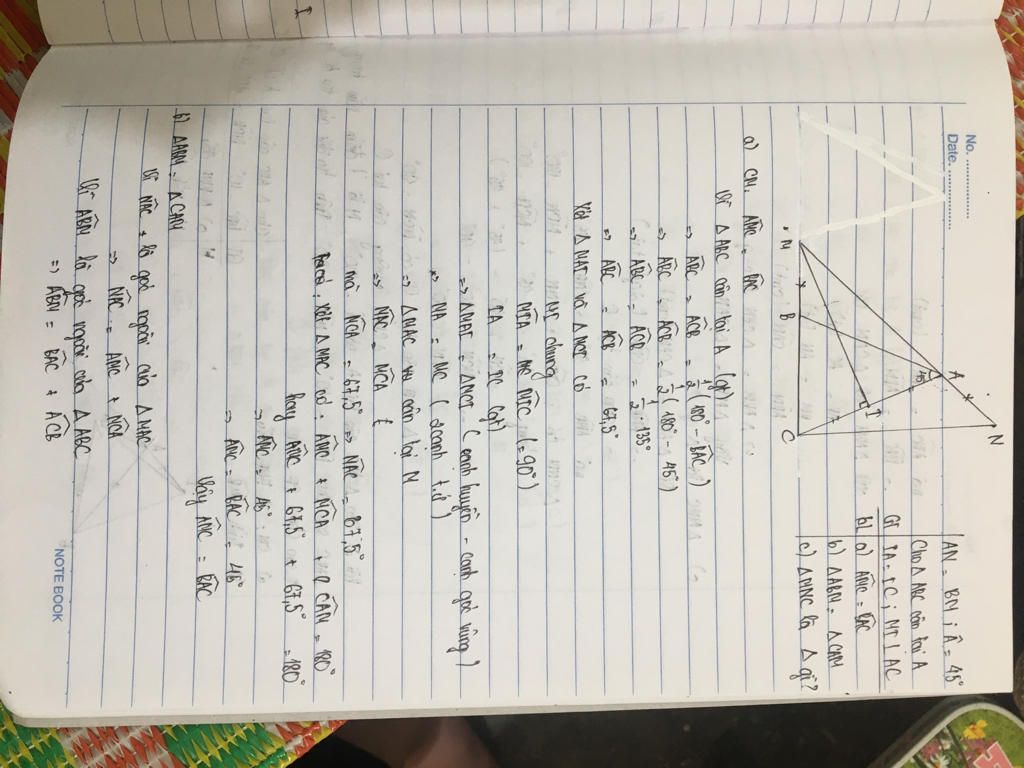 No. ....................
Date. ..................
N
A
45°
I
M
B
C
AN = BM ; Â = 45°
Cho Δ ABC cân tại A
GT IA = IC ; MI ⊥ AC
kl a) AMC = BAC
b) Δ ABM = Δ CAN
c) Δ MNC là Δ gì ?
a) CM: AMC = BAC
Vì Δ ABC cân tại A (gt)
⇒ ABC = ACB = 1/2 (180° - BAC)
⇒ ABC = ACB = 1/2 (180° - 45°)
⇒ ABC = ACB = 1/2 . 135°
⇒ ABC = ACB = 67,5°
Xét Δ MAI và Δ MCI có
MI chung
MIA = MIC (= 90°)
IA = IC (gt)
⇒ Δ MAI = Δ MCI ( cạnh huyền - cạnh góc vuông )
⇒ MA = MC ( 2 cạnh t.ứ )
⇒ Δ MAC cân tại M
⇒ MAC = MCA
mà MCA = 67,5° ⇒ MAC = 67,5°
Xét Δ MAC có : AMC + MCA + CAM = 180°
hay AMC + 67,5° + 67,5° = 180°
⇒ AMC = 45°
⇒ AMC = BAC = 45°
Vậy AMC = BAC
b) Δ ABM = Δ CAN
Vì NAC là góc ngoài của Δ MAC
⇒ NAC = AMC + MCA
Vì ABM là góc ngoài của Δ ABC
⇒ ABM = BAC + ACB
NOTE BOOK
I